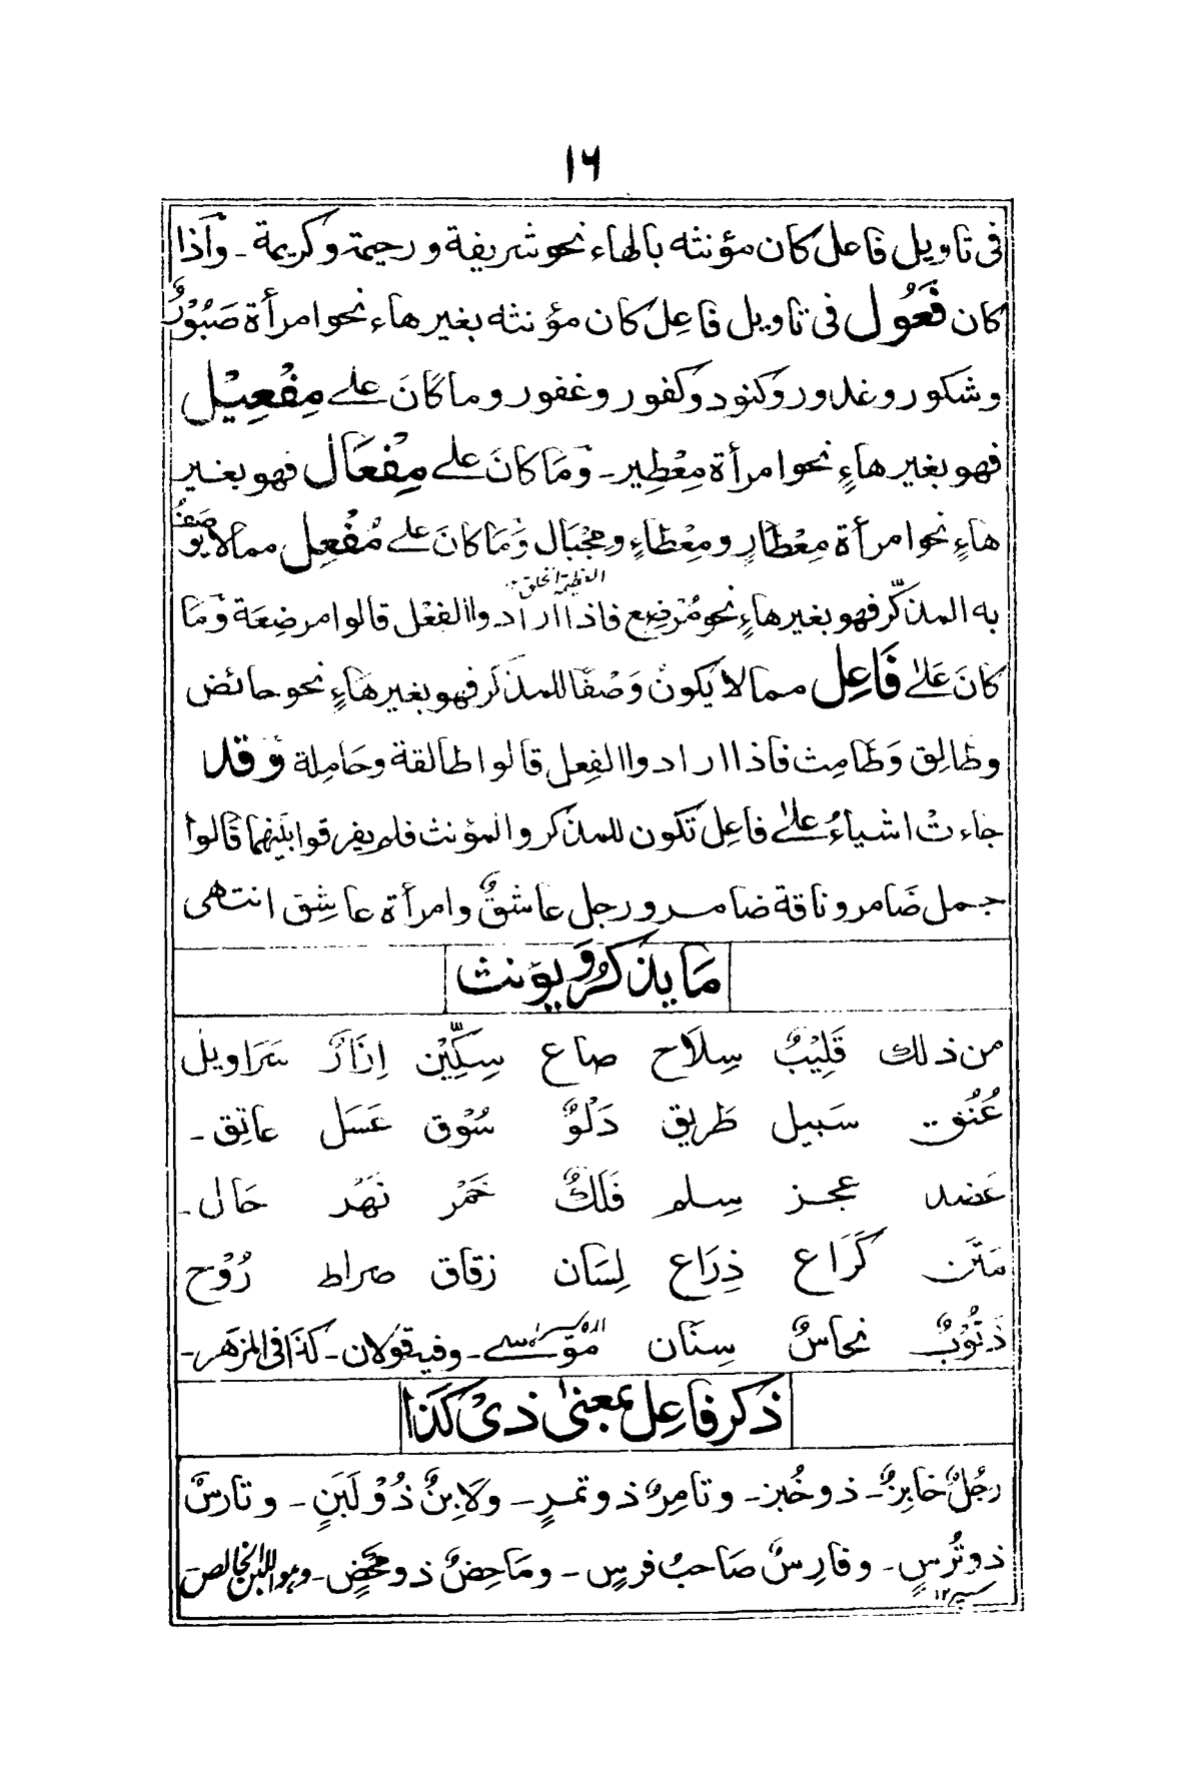 ١٦
فى تاويل فاعل كان مؤنثه بالهاء نحو شريفة ورحيمة وكريمة ـ واذا
كان فَعُول فى تاويل فاعِل كان مؤنثه بغير هاء نحو امرأة صَبُوْرٌ
وشكور وغدور وكنود وكفور وغفور وما كَانَ علے مِفْعِيْل
فهو بغير هاءٍ نحو امرأة مِعْطِير ـ وَمَا كانَ علے مِفْعَال فهو بغير
هاءٍ نحو امرأة مِعْطَارٍ ومِعْطَاءٍ ومِجْبَال وَمَا كانَ علے مُفْعِل مما لا يوصَفُ
العظيمة الخلق
به المذكّر فهو بغير هاءٍ نحو مُرْضِع فاذا ارادوا الفعْل قالوا مرضِعَة وَمَا
كانَ عَلىٰ فَاعِل مما لا يكون وَصْفًا للمذكَر فهو بغير هَاءٍ نحو حائض
وطَالِق وَطَامِث فاذا ارادوا الفِعل قالوا طالقة وحَامِلة وَقد
جاءتْ اشياءُ علىٰ فاعِل تكون للمذكر والمؤنث فلم يفرقوا بَيْنهما قَالوا
جمل ضَامر وناقة ضامر ورجل عاشقٌ وامرأة عاشِق انتهى
مَا يذكرُ ويؤنث
من ذلك قَلِيْبٌ سِلَاح صاع سِكِّيْن اِزَارٌ سَرَاويل
عُنُق سَبيل طَريق دَلْوٌ سُوْق عَسَل عاتِق ـ
عَضد عجز سِلم فَلَكٌ خَمْر نَهْر حَال ـ
مَتَن كُرَاع ذِرَاع لِسَان زقاق صراط رُوْح
ذَنُوْبٌ نحاسٌ سِنَان موْسے ـ وفيه قولان ـ كذَا فى المزهر ـ
ذكر فاعِل بمعنىٰ ذىْ كَذا
رجُلٌ خابِزٌ ـ ذو خُبز ـ وتامِرٌ ذو تمرٍ ـ ولَابِنٌ ذُوْ لَبَنٍ ـ وتارسٌ
ذو تُرسٍ ـ وفارِسٌ صَاحبُ فرسٍ ـ ومَاحِضٌ ذو مَحْضٍ ـ وهو اللبن الخالص
سپر ١٢